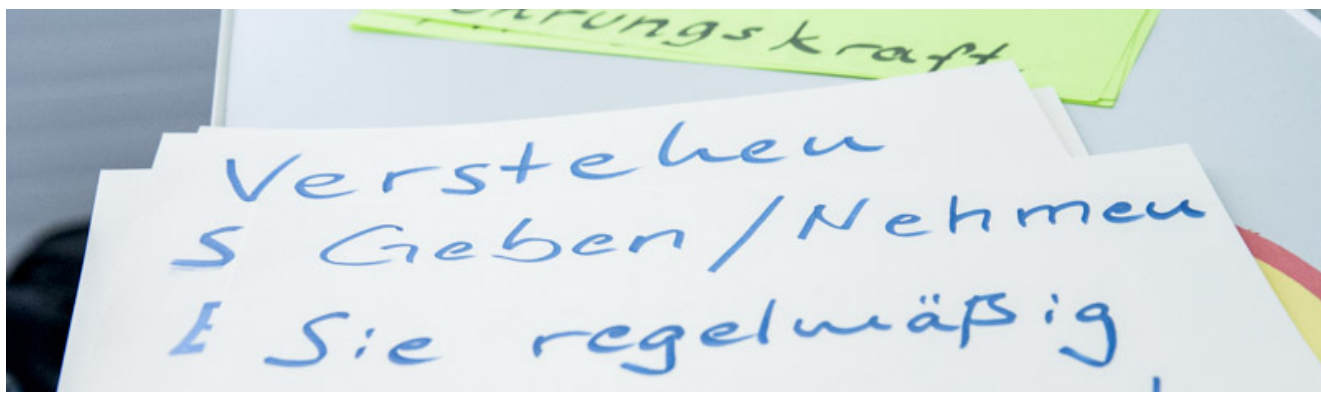 ührungskraft
Verstehen
S Geben/Nehmen
E Sie regelmäßig